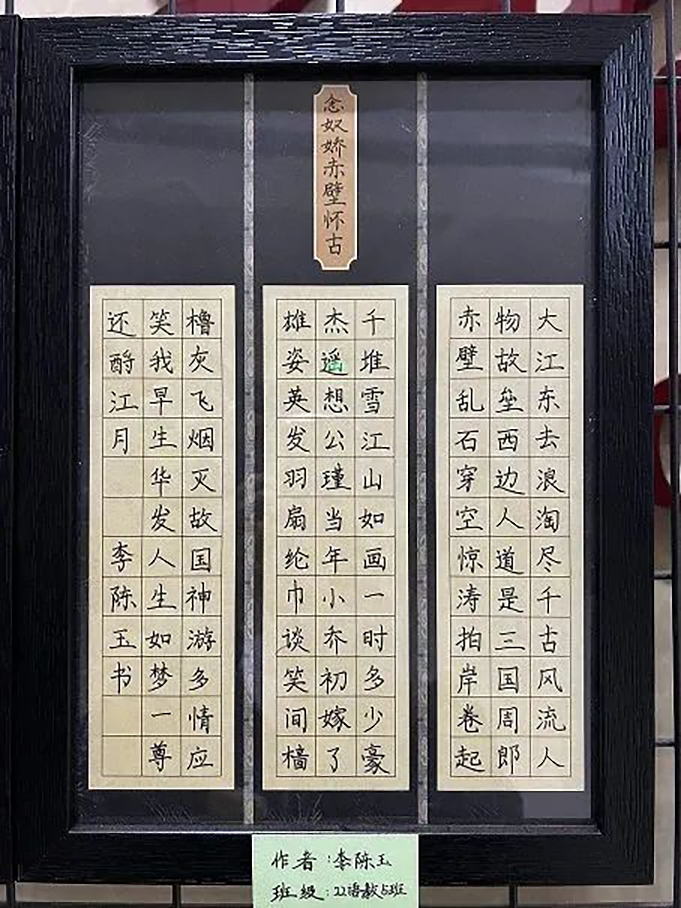 念奴娇赤壁怀古
大江东去浪淘尽千古风流人
物故垒西边人道是三国周郎
赤壁乱石穿空惊涛拍岸卷起
千堆雪江山如画一时多少豪
杰遥想公瑾当年小乔初嫁了
雄姿英发羽扇纶巾谈笑间樯
橹灰飞烟灭故国神游多情应
笑我早生华发人生如梦一尊
还酹江月 李陈玉书
作者：李陈玉
班级：22语教5班